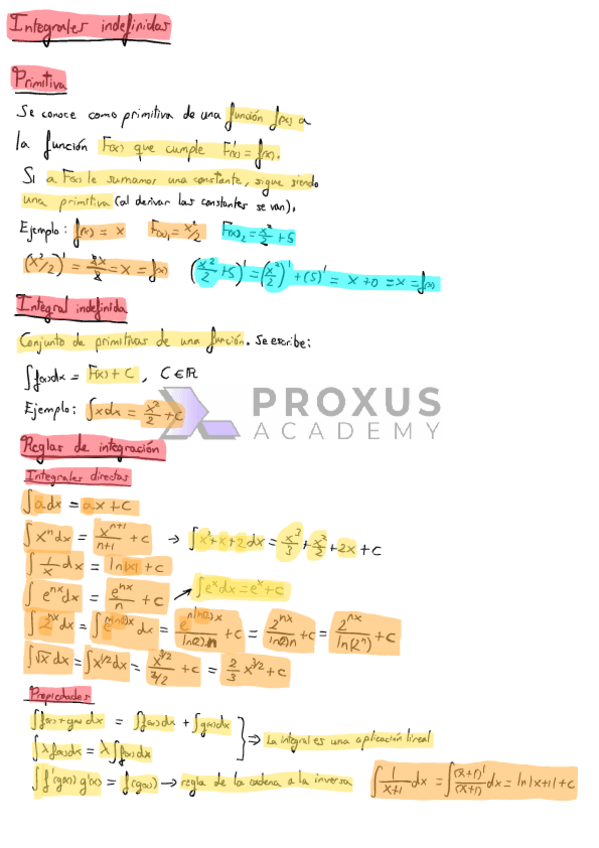 Integrales indefinidas
Primitiva
Se conoce como primitiva de una función f(x) a
la función F(x) que cumple F'(x) = f(x).
Si a F(x) le sumamos una constante, sigue siendo
una primitiva (al derivar las constantes se van).
Ejemplo: f(x) = x F(x)₁ = x²/2 F(x)₂ = x²/2 + 5
(x²/2)' = 2x/2 = x = f(x) (x²/2 + 5)' = (x²/2)' + (5)' = x + 0 = x = f(x)
Integral indefinida
Conjunto de primitivas de una función. Se escribe:
∫f(x)dx = F(x) + C , C ∈ ℝ
PROXUS
ACADEMY
Ejemplo: ∫xdx = x²/2 + C
Reglas de integración
Integrales directas
∫a dx = ax + C
∫xⁿdx = xⁿ⁺¹/n+1 + C → ∫x²+x+2dx = x³/3 + x²/2 + 2x + C
∫1/x dx = ln|x| + C
∫eⁿˣdx = eⁿˣ/n + C → ∫eˣdx = eˣ + C
∫2ⁿˣdx = ∫e^(n ln(2)x) dx = e^(n ln(2)x)/ln(2)·n + C = 2ⁿˣ/ln(2)n + C = 2ⁿˣ/ln(2ⁿ) + C
∫√x dx = ∫x^1/2 dx = x^3/2/3/2 + C = 2/3 x^3/2 + C
Propiedades
∫f(x)+g(x) dx = ∫f(x)dx + ∫g(x)dx
∫λf(x)dx = λ∫f(x)dx
} ⇒ La integral es una aplicación lineal
∫f'(g(x)) g'(x) = f(g(x)) → regla de la cadena a la inversa ∫1/x+1 dx = ∫(x+1)'/(x+1) dx = ln|x+1| + C